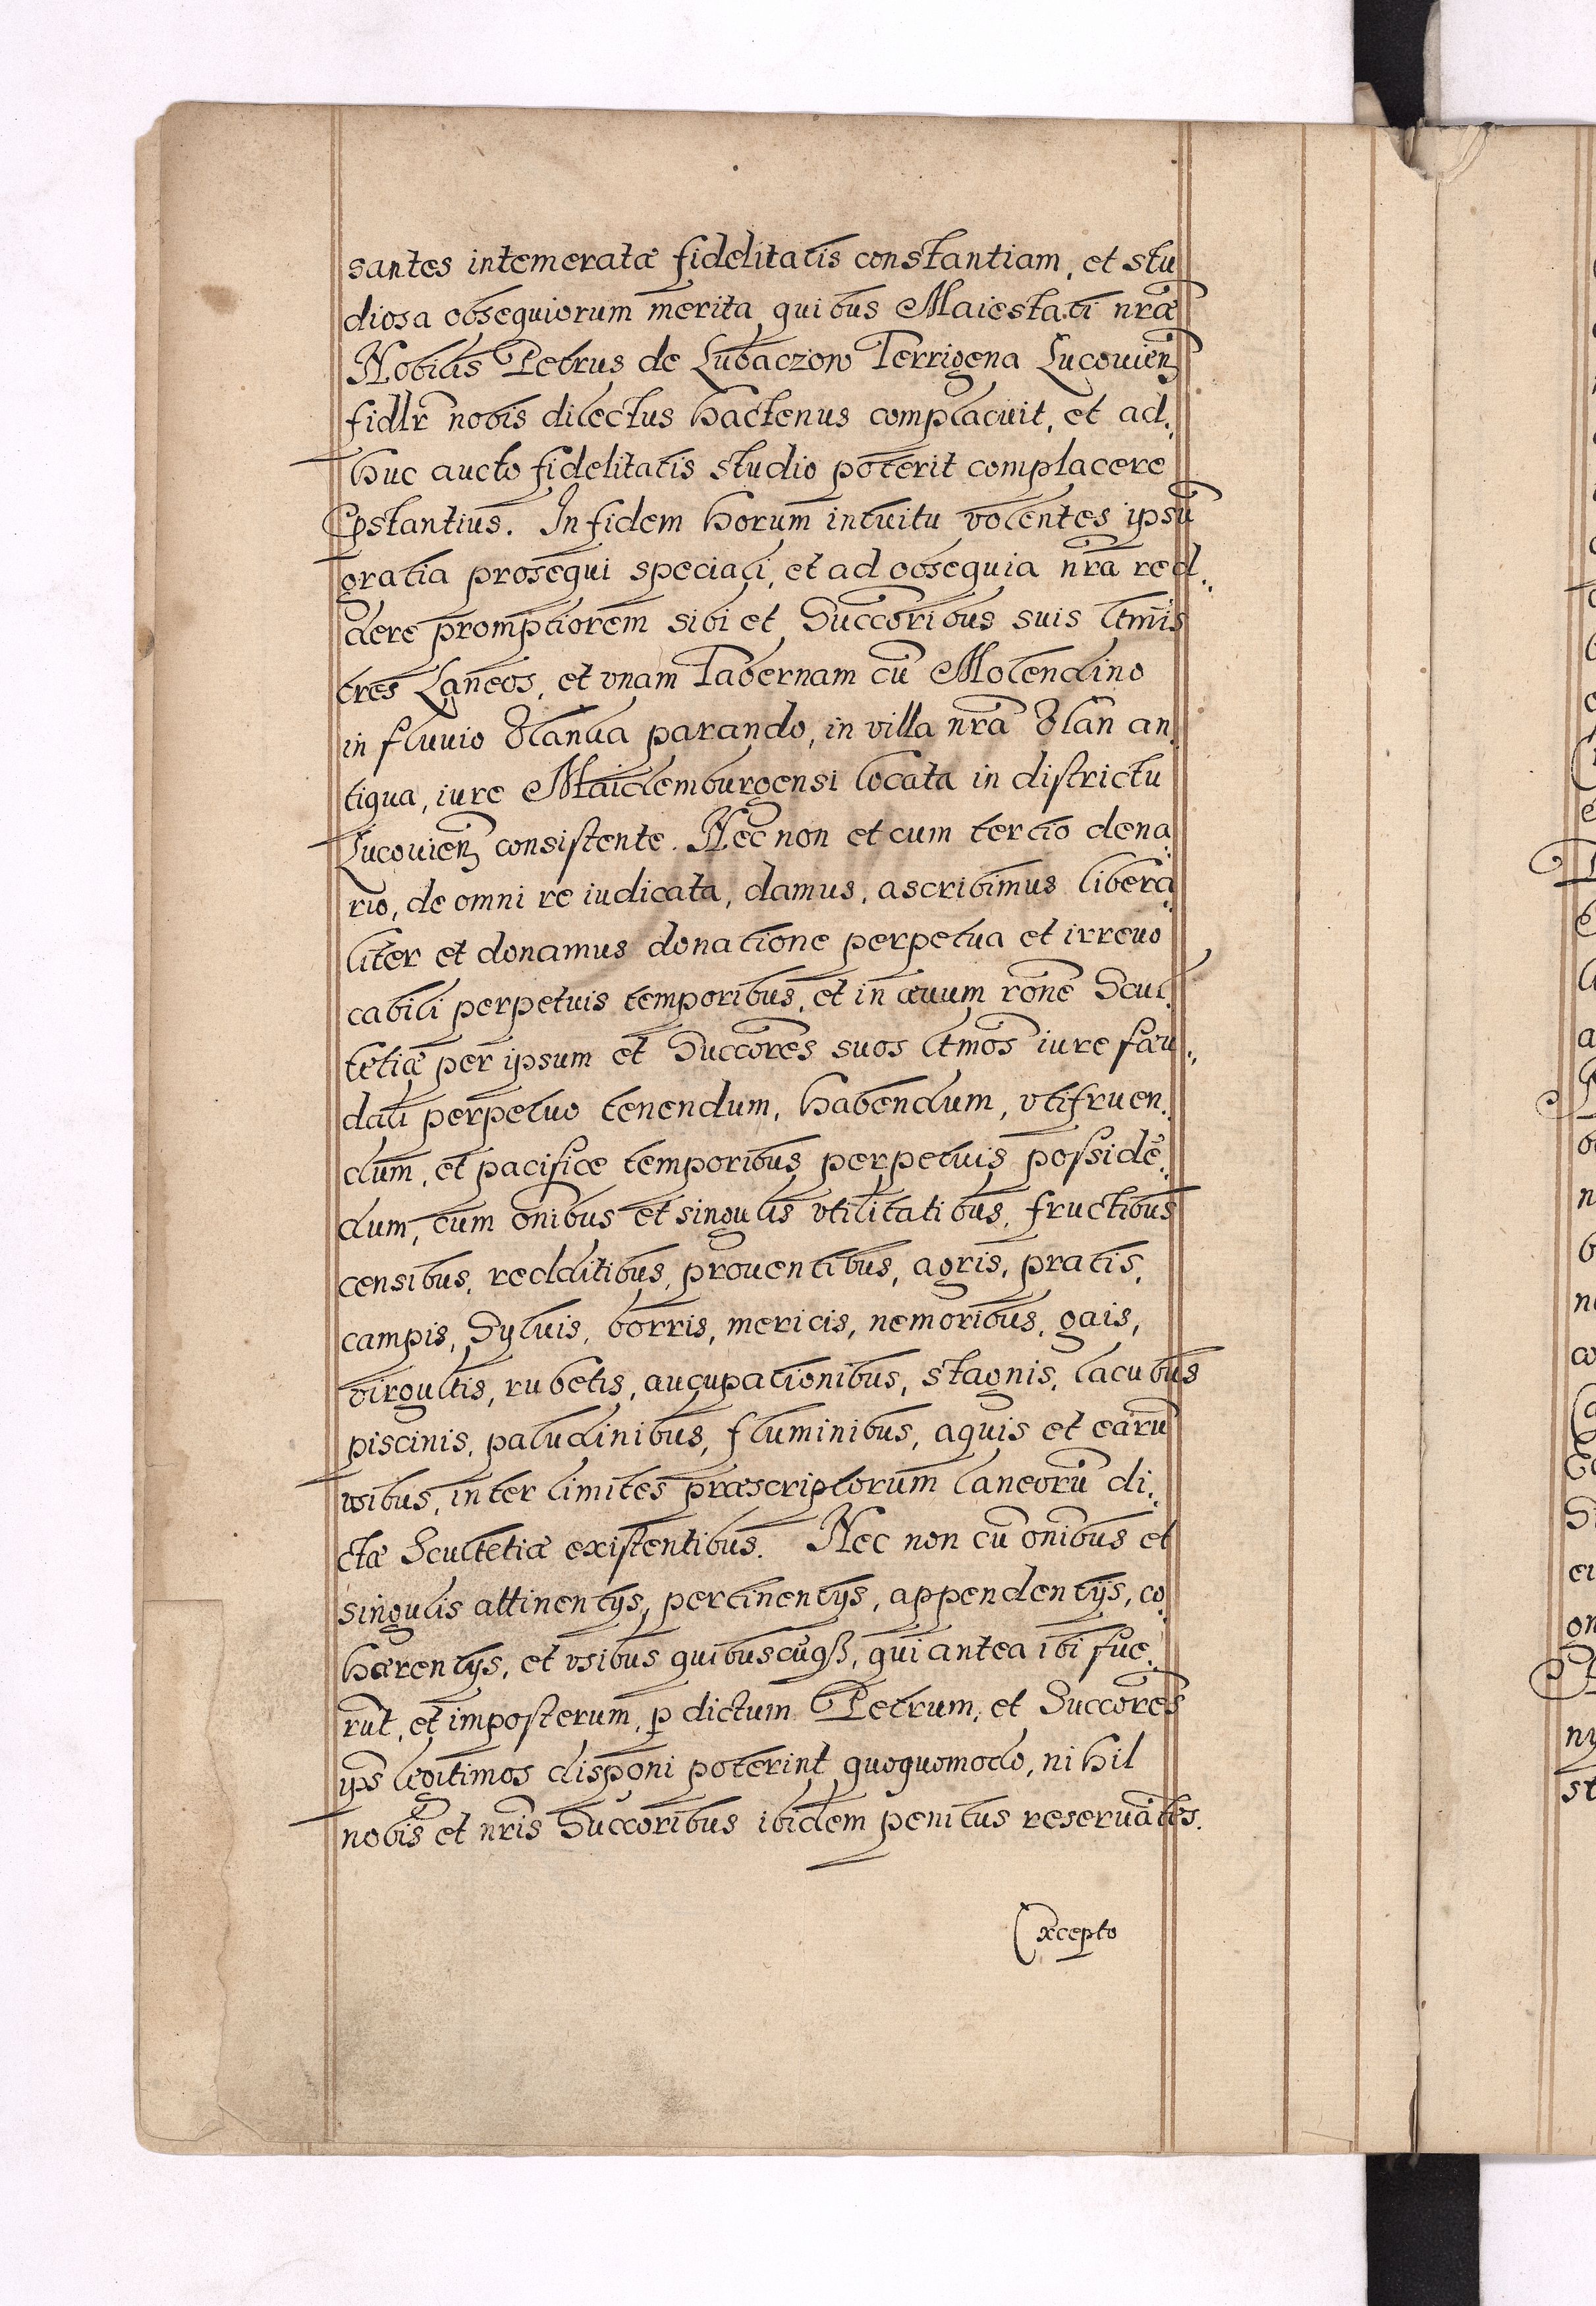 santes intemeratæ fidelitatis constantiam, et stu
diosa obsequiorum merita quibus Maiestati nræ
Nobilis Petrus de Lubaczow Terrigena Lucovien
fidlr nobis dilectus hactenus complacuit, et ad.
huc aucto fidelitatis studio poterit complacere
In fidem horum intuitu volentes ipsū
gratia prosequi speciali, et ad obsequia nra red.
dere promptiorem sibi et Succoribus suis ltmis
tres Laneos, et vnam Tabernam cū Molendino
in fluvio parando, in villa nra an
tiqua, iure Maidemburgensi locata in districtu
Lucovien consistente. Nec non et cum tertio dena
rio, de omni re iudicata, damus, ascribimus libera
liter et donamus donatione perpetua et irrevo
cabili perpetuis temporibus, et in ævum rone Scul
tetiæ per ipsum et Succores suos ltmos iure fæu
dali perpetuo tenendum, habendum, vtifruen.
dum, et pacifice temporibus perpetuis possidē.
dum, cum onibus et singulis vtilitatibus, fructibus
censibus, redditibus, prouentibus, agris, pratis,
campis, Syluis, borris, mericis, nemoribus, gais,
virgultis, rubetis, aucupationibus, stagnis, lacubus
piscinis, paludinibus, fluminibus, aquis et earū
vsibus, inter limites præscriptorum laneorū di.
ctæ Scultetiæ existentibus. Nec non cū onibus et
singulis attinentijs, pertinentijs, appendentijs, co
hærentijs, et vsibus quibuscūqß, qui antea ibi fue.
rūt, et imposterum, p dictum Petrum, et Succores
ips legitimos disponi poterint quoquomodo, nihil
nobis et nris Succoribus ibidem penitus reseruātes.
Excepto